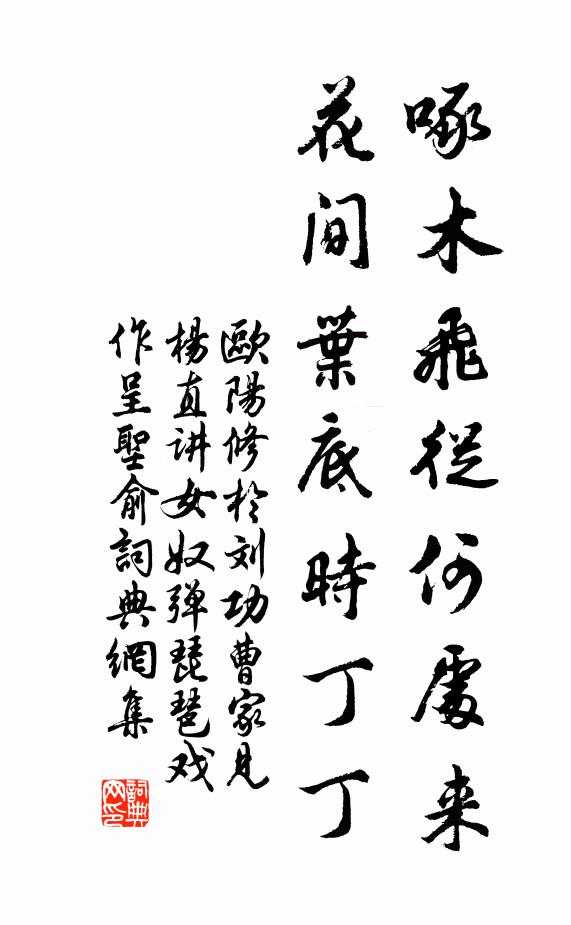 啄木飛從何處来
花間葉底時丁丁
歐陽修於刘功曹家見
楊直讲女奴弹琵琶戏
作呈聖俞詞典網集
詞典网印